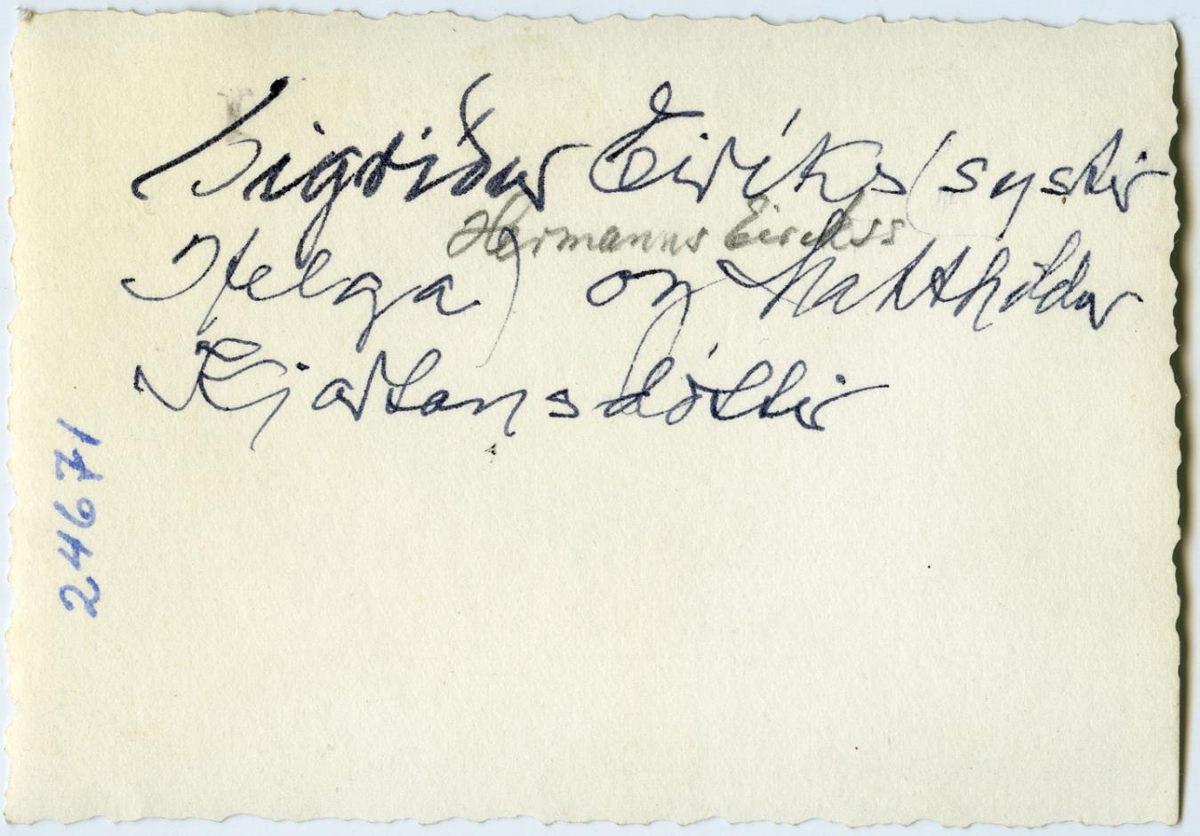 Sigríður Eiríks (systir
Hermanns Eirikss
Helga) og Matthildur
Kjartansdóttir
24671